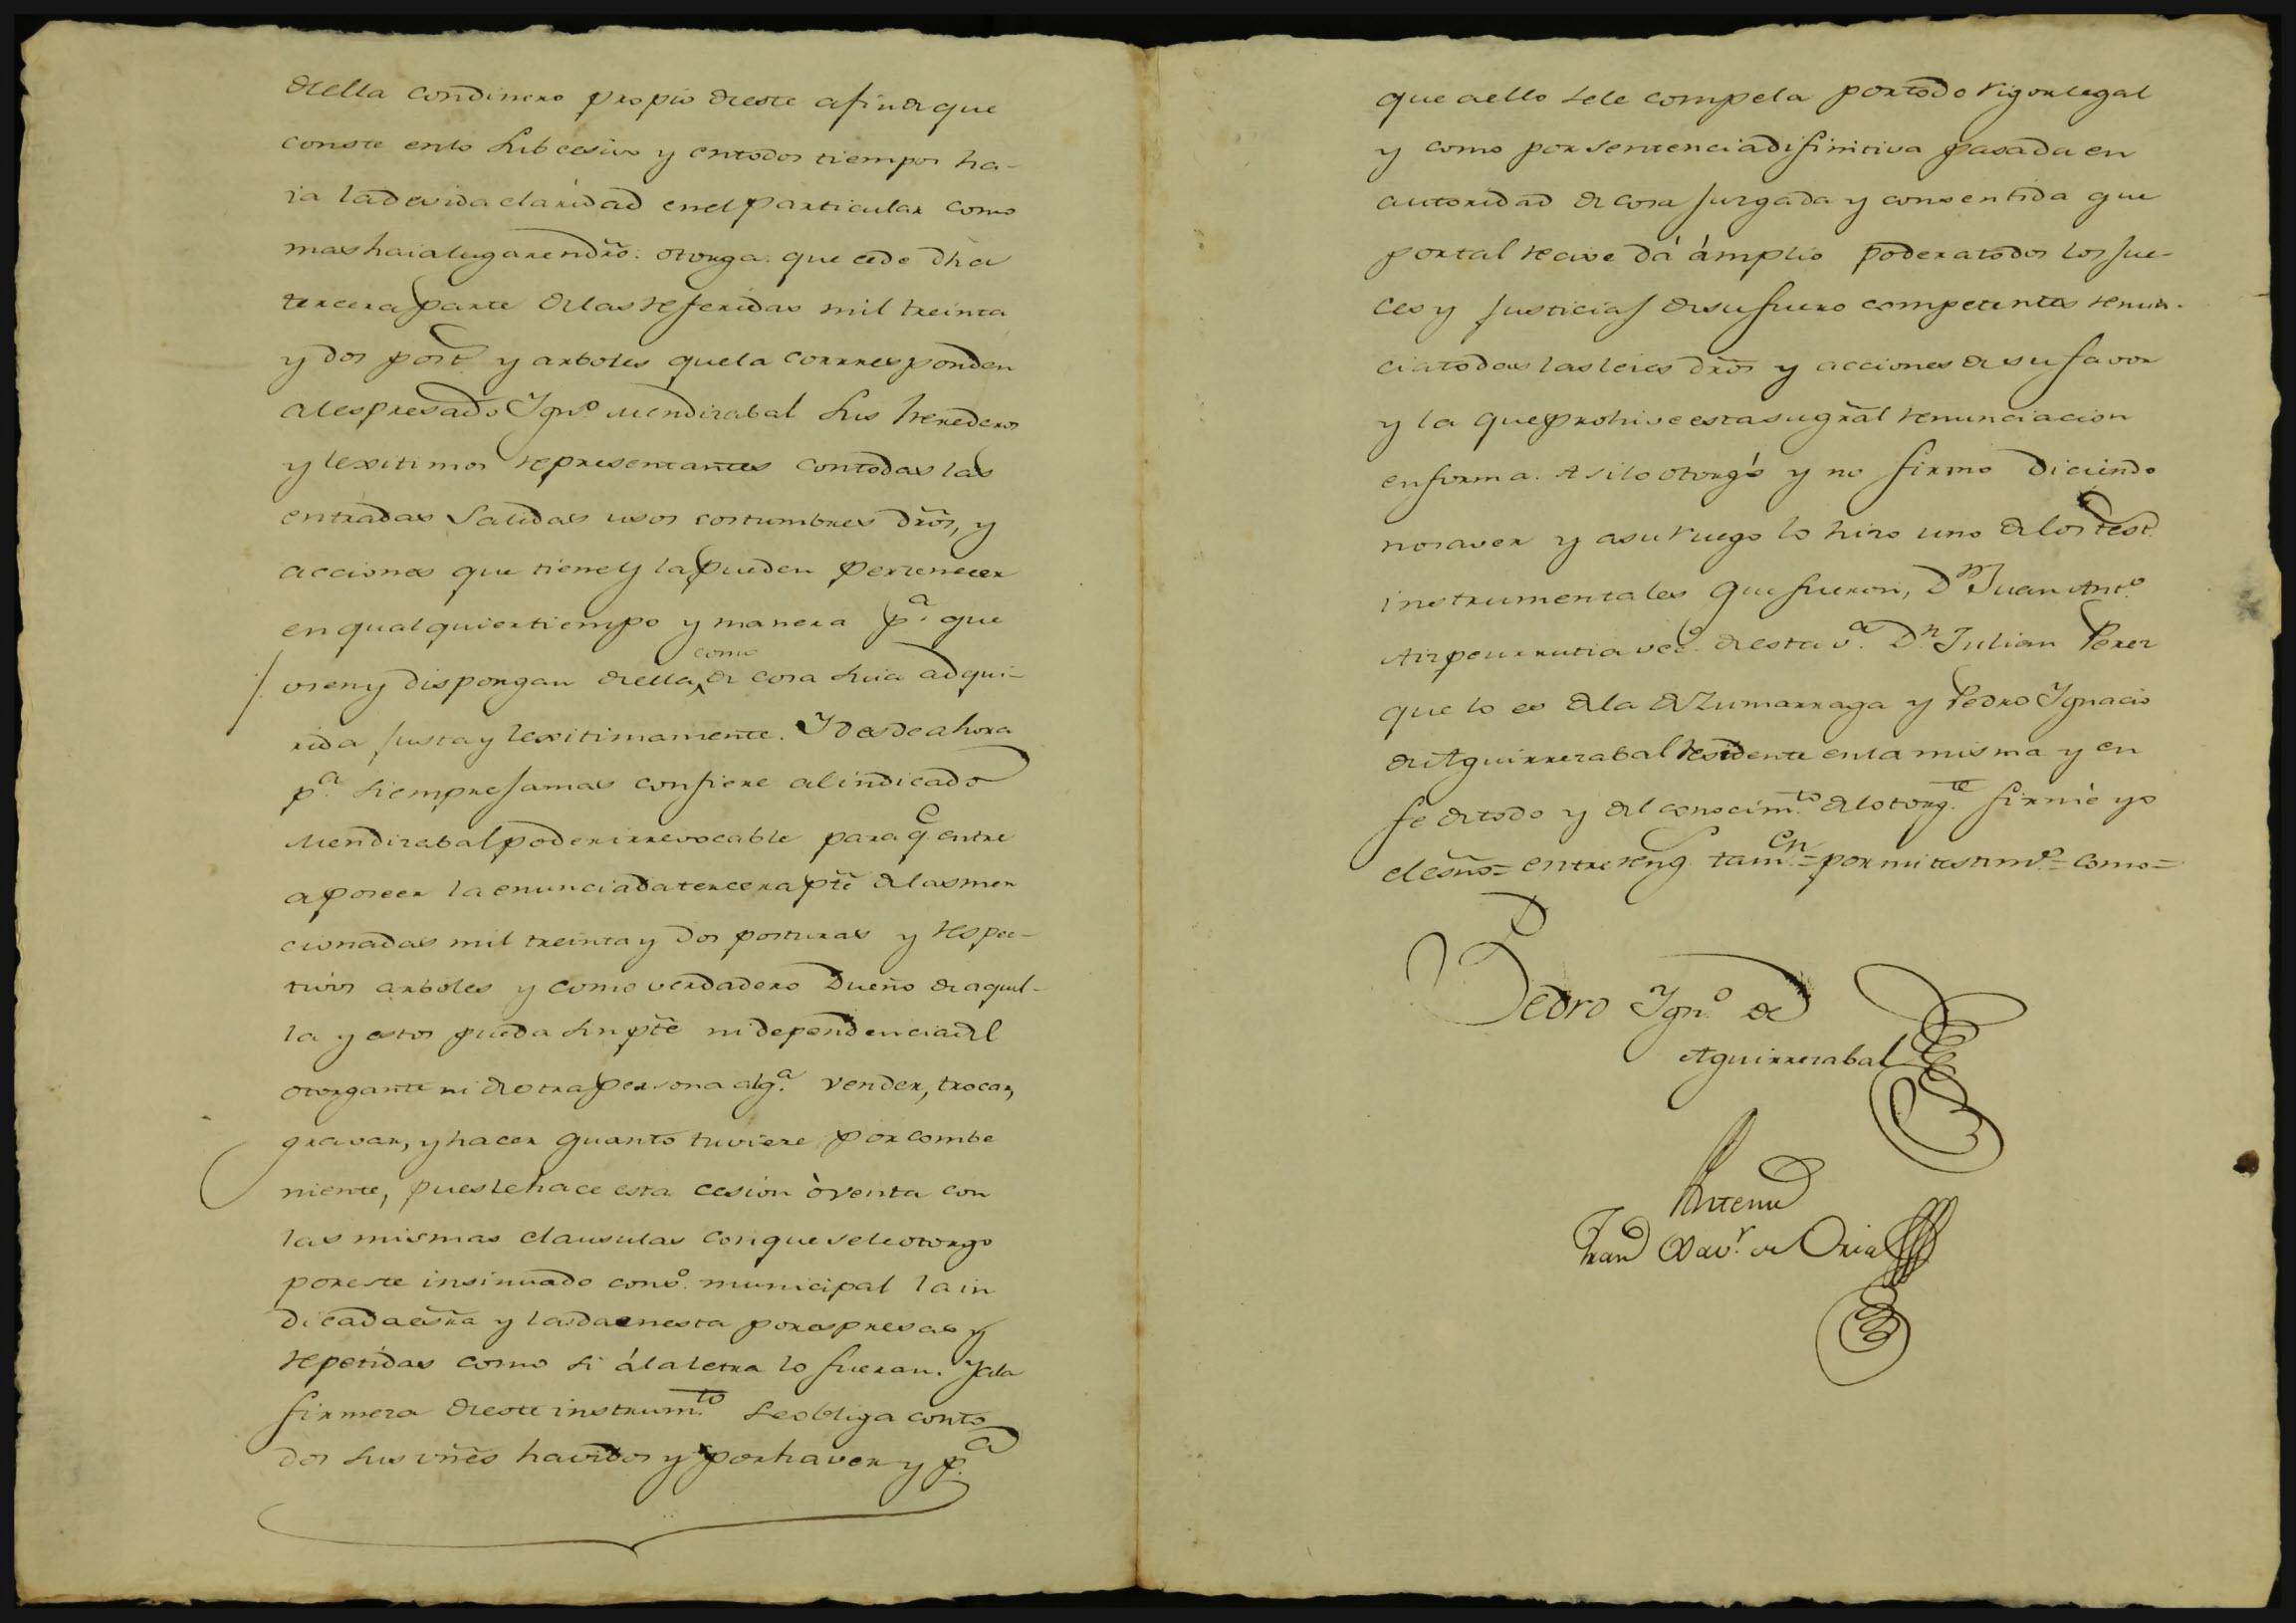 de ella con dinero propio de este a fin de que
conste en lo subcesivo y en todos tiempos ha-
ia la devida claridad en el particular como
mas haia lugar en dro. otorga: que cede dha
tercera parte de las referidas mil treinta
y dos post. y arboles que la corrresponden
al espresado Ygno. Mendizabal sus herederos
y lexitimos representantes con todas las
entradas salidas usos costumbres dros, y
acciones que tiene y la pueden pertenecer
en qualquier tiempo y manera pa. que
usen y dispongan de ella como de cosa suia adqui-
rida justa y lexitimamente. Y desde ahora
pa. siempre jamas confiere al indicado
Mendizabal poder irrevocable para q.e entre
a poseer la enunciada tercera pte de las men
cionadas mil treinta y dos posturas y respec-
tivos arboles y como verdadero Dueño de aquel-
la y estos pueda sin pte ni dependencia del
otorgante ni de otra persona alg.a vender, trocar,
gravar, y hacer quanto tuviere por combe
niente, pues le hace esta cesion ò venta con
las mismas clausulas con que se le otorgo
por este insinuado cons.o municipal la in
dicada esra y las da en esta por espresas y
repetidas como si á la letra lo fueran. Y a la
firmeza de este instrum.to se obliga con to
dos sus vnes havidos y por haver y p.a
que a ello se le compela por todo rigor legal
y como por sentencia difinitiva pasada en
autoridad de cosa juzgada y consentida que
por tal recive dá ámplio poder a todos los jue-
ces y justicias de su fuero competentes renun-
cia todas las leies dros y acciones de su favor
y la que prohive esta su gral renunciacion
en forma. Asi lo otorgó y no firmo diciendo
no saver y a su ruego lo hizo uno de los test.
instrumentales que fueron, D.n Juan Ant.o
Aizpeurrutia vec.o de esta v.a D.n Julian Perez
que lo es de la de Zumarraga y Pedro Ygnacio
de Aguirrezabal residente en la misma y en
fe de todo y del conocim.to del otorg.te firmè yo
el esno= entre reng. tam.en=por mi testim.o=como=
Pedro Ygn.o de
Aguirrezabal
Antemi
Fran.co Xav.r de Oria